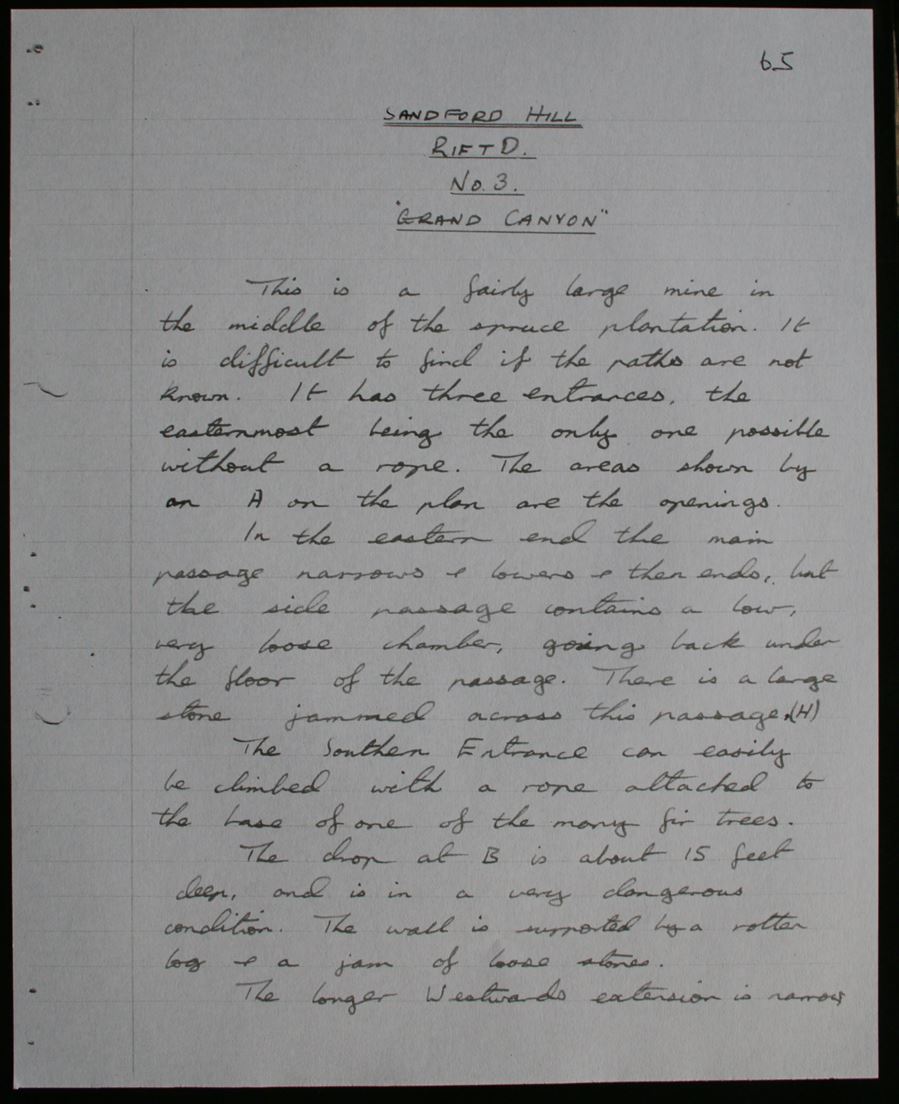 65
SANDFORD HILL
RIFT D.
No. 3.
"GRAND CANYON"
This is a fairly large mine in
the middle of the spruce plantation. It
is difficult to find if the paths are not
known. It has three entrances, the
easternmost being the only one possible
without a rope. The areas shown by
an A on the plan are the openings.
In the eastern end the main
passage narrows & lowers & then ends, but
the side passage contains a low,
very loose chamber, going back under
the floor of the passage. There is a large
stone jammed across this passage.(H)
The Southern Entrance can easily
be climbed with a rope attached to
the base of one of the many fir trees.
The drop at B is about 15 feet
deep, and is in a very dangerous
condition. The wall is supported by a rotten
log & a jam of loose stones.
The longer Westwards extension is narrow